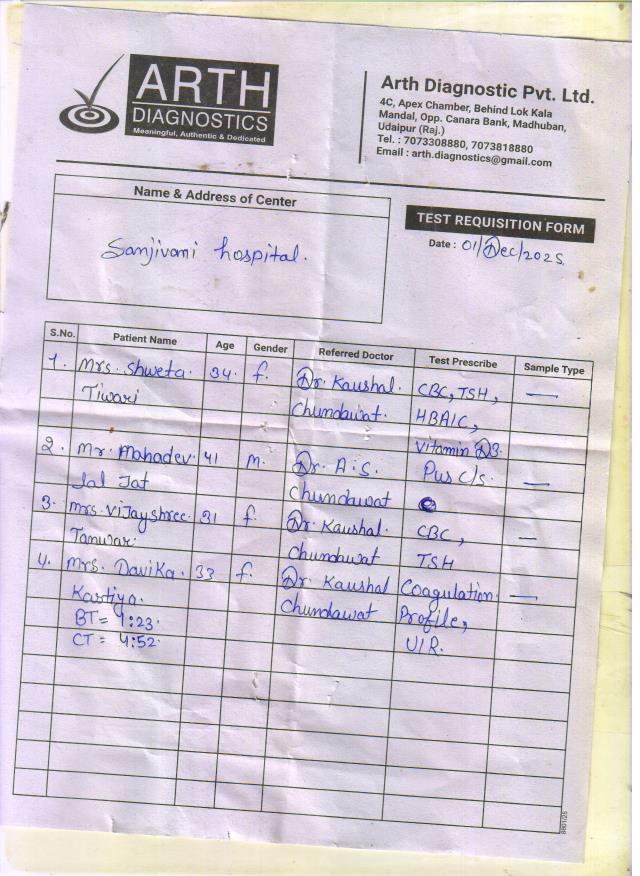 ARTH
DIAGNOSTICS
Meaningful, Authentic & Dedicated
Arth Diagnostic Pvt. Ltd.
4C, Apex Chamber, Behind Lok Kala
Mandal, Opp. Canara Bank, Madhuban,
Udaipur (Raj.)
Tel. : 7073308880, 7073818880
Email : arth.diagnostics@gmail.com
Name & Address of Center
Sanjivani hospital.
TEST REQUISITION FORM
Date : 01/Dec/2025
S.No. Patient Name Age Gender Referred Doctor Test Prescribe Sample Type
1. Mrs. Shweta. 34. f. Dr. Kaushal. CBC, TSH, —
Tiwari Chundawat. HBA1C,
Vitamin D3.
2. Mr. Mahadev. 41 M. Dr. A.S. Pus C/s. —
Jal Jat Chundawat
3. Mrs. Vijayshree. 31 f. Dr. Kaushal. CBC, —
Tanwar. Chundawat TSH
4. Mrs. Davika. 33 f. Dr. Kaushal Coagulation. —
Kastiya. Chundawat Profile,
BT = 4:23. U/R.
CT = 4:52.
8601/25